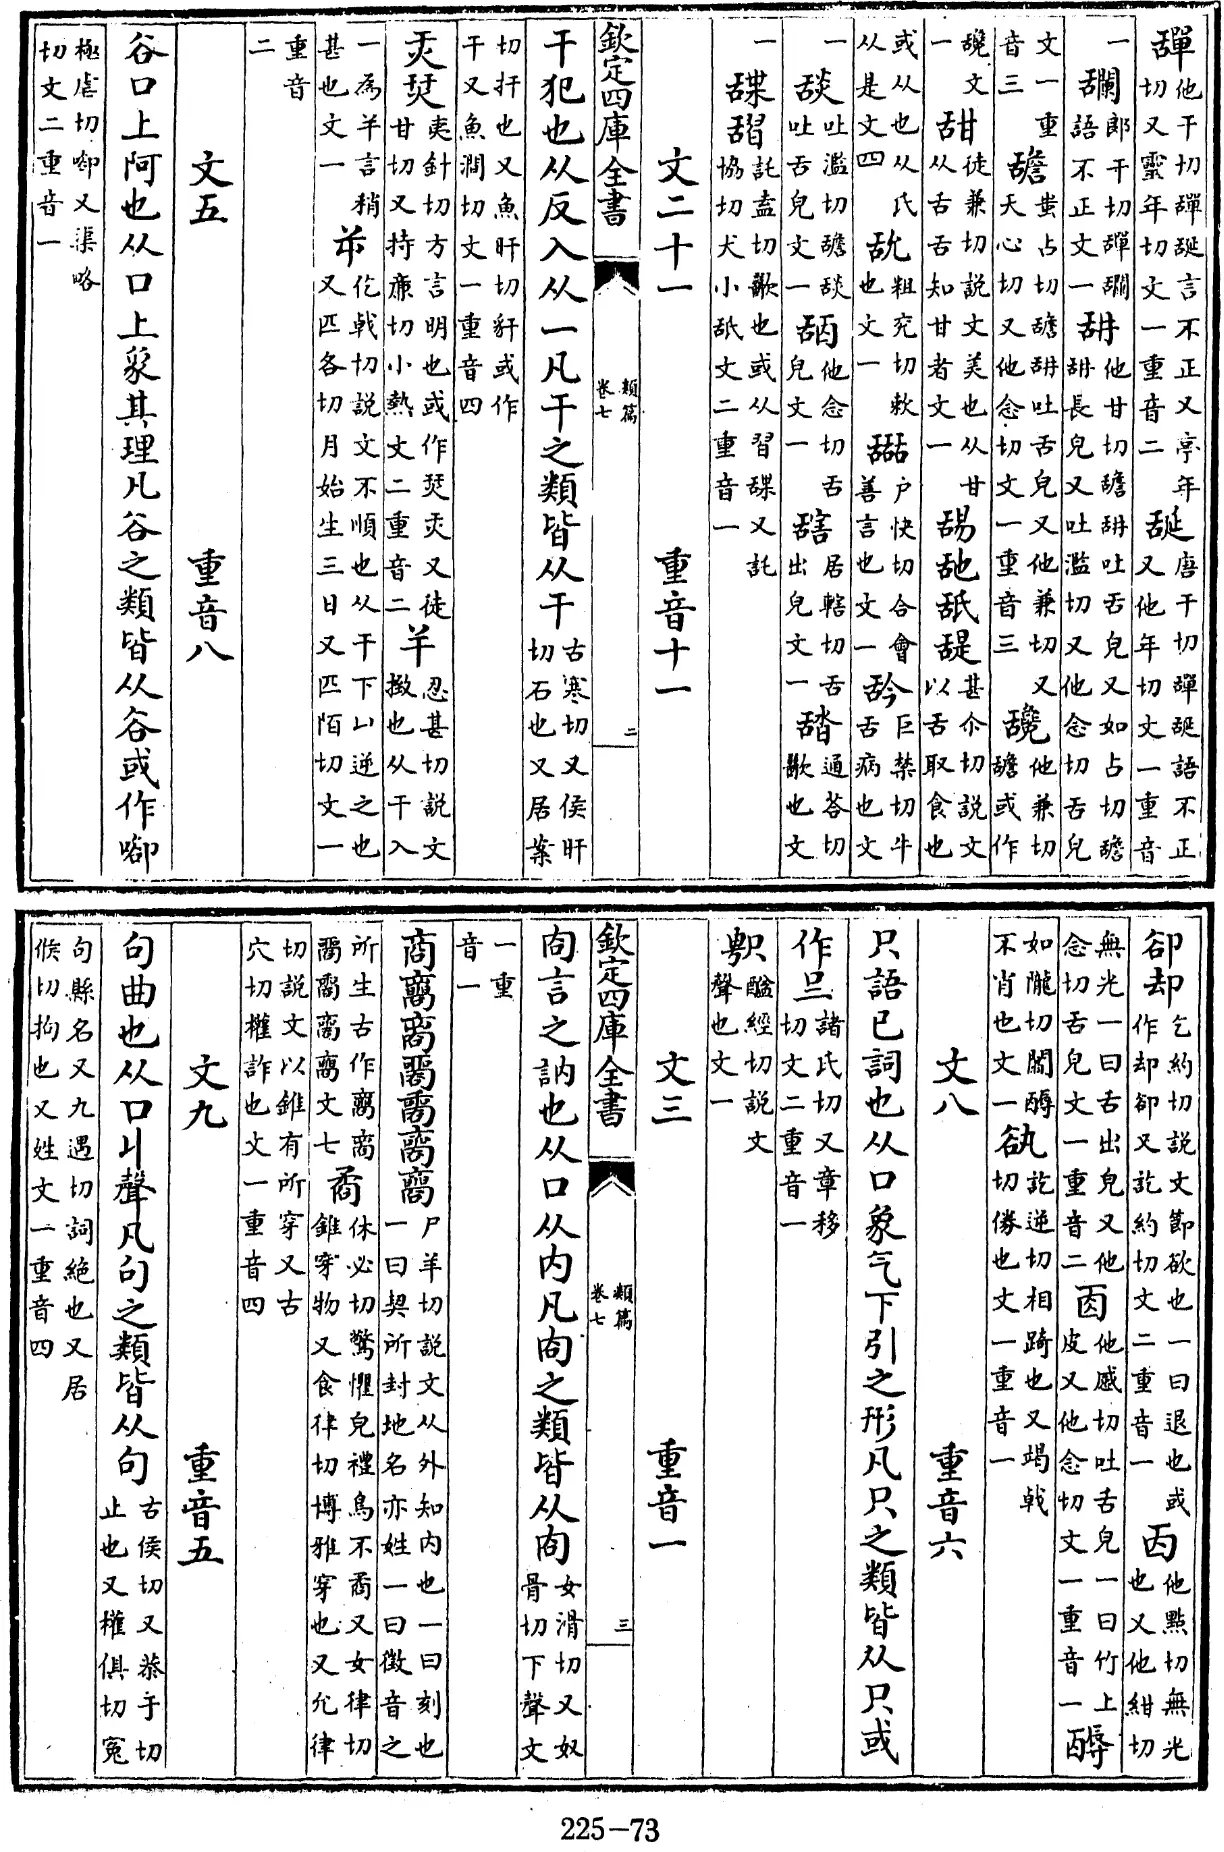 他干切䑣言不正又亭年切又靈年切文一重音二䑣唐干切䑣語不正又他年切文一重音
一郎干切語不正文一舑他甘切䑙舑吐舌皃又如占切䑙舑長皃又吐濫切又他念切舌皃
文一重音三䑙蚩占切䑙舑吐舌皃又他兼切又天心切又他念切文一重音三他兼切䑙或作
文一甜徒兼切説文美也从甘从舌舌知甘者文一舓舐甚尒切説文以舌取食也
或从也从氏从是文四粗兖切欶也文一户快切合會善言也文一巨禁切牛舌病也文
一舕吐濫切䑙舕吐舌皃文一他念切舌皃文一居轄切舌出皃文一通荅切歠也文
一託盍切歠也或从習又託協切犬小舐文二重音一
文二十一 重音十一
欽定四庫全書 類篇卷七 二
干犯也从反入从一凡干之類皆从干古寒切又侯旰切石也又居案
切扞也又魚旰切豻或作干又魚澗切文一重音四
夷針切方言明也或作又徒甘切又持廉切小熱文二重音二𢆉忍甚切説文𢆉撖也从干入
一為𢆉言稍甚也文一屰仡戟切説文不順也从干下凵逆之也又匹各切月始生三日又匹陌切文一
重音二
文五 重音八
谷口上阿也从口上象其理凡谷之類皆从谷或作㖸
極虐切㖸又渠略切文二重音一
卻却乞約切説文節欲也一曰退也或作却却卻又訖約切文二重音一㐁他點切無光也又他紺切
無光一曰舌出皃又他念切舌皃文一重音二他感切吐舌皃一曰竹上皮又他念切文一重音一
如隴切闒不肖也文一訖逆切相踦也又竭戟切劵也文一重音一
文八 重音六
只語已詞也从口象气下引之形凡只之類皆从只或
作諸氏切又章移切文二重音一
䤈經切説文聲也文一
文三 重音一
欽定四庫全書 類篇卷七 三
㕯言之訥也从口从内凡㕯之類皆从㕯女滑切又奴骨切下聲文
一重音一
商尸羊切説文从外知内也一曰刻也一曰契所封地名亦姓一曰徵音之
所生古作文七矞休必切驚懼皃禮鳥不矞又女律切錐穿物又食律切博雅穿也又允律
切説文以錐有所穿又古穴切權詐也文一重音四
文九 重音五
句曲也从口丩聲凡句之類皆从句古侯切又恭于切止也又權俱切冤
句縣名又九遇切詞絶也又居候切拘也又姓文一重音四
225-73